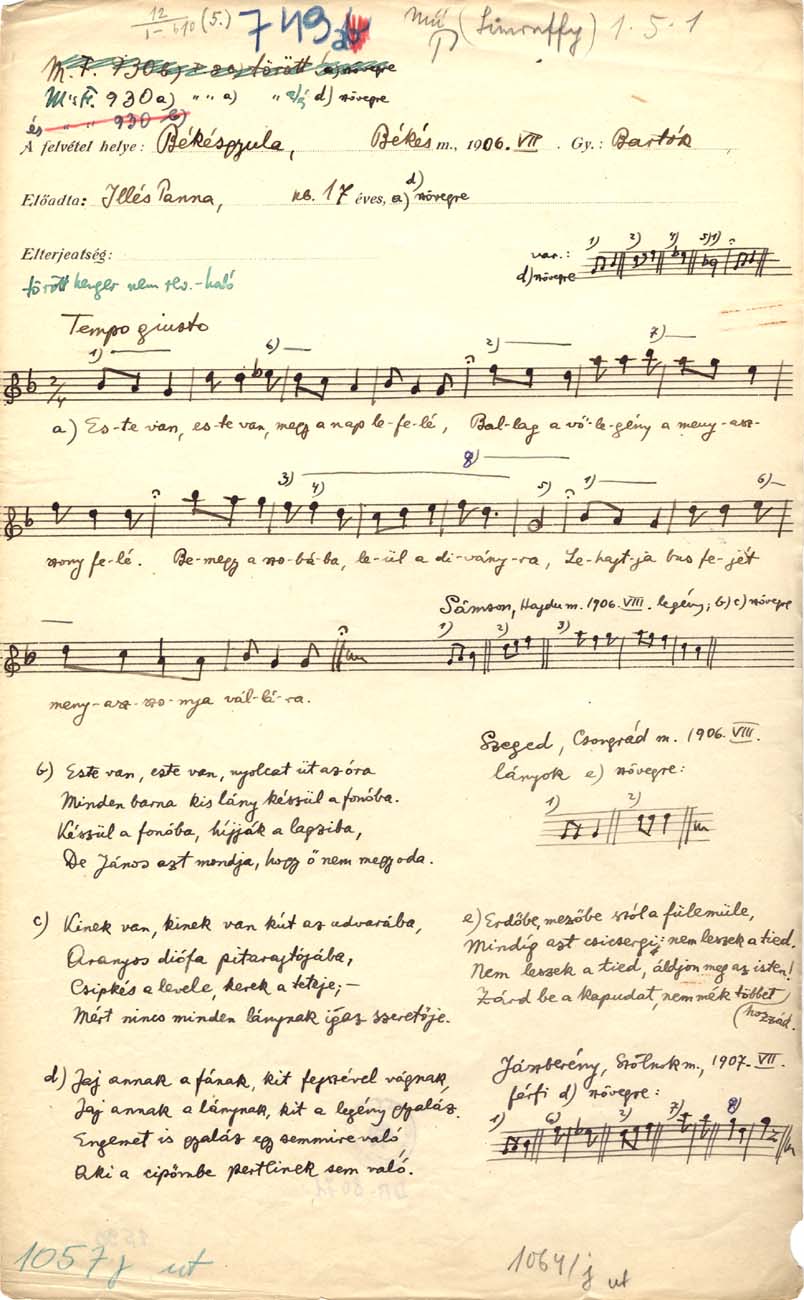 12/I-610 (5.) 749 Mű P (Limraffy) 1.5.1
M. F. 930b) a) törött a) szövegre
M. F. 930 a) " " a) " d) szövegre
és " " 930 b)
A felvétel helye: Békésgyula, Békés m., 1906. VII. Gy.: Bartók
d)
Előadta: Illés Panna, kb. 17 éves, a) szövegre
Elterjeatség:
var.:
d) szövegre
1) 2) 4) 5) 1)
törött henger nem rev.-ható
Tempo giusto
1) 6) 2) 7)
2/4
a) Es-te van, es-te van, megy a nap le-fe-lé, Bal-lag a vő-le-gény a meny-asz-
3) 4) 8) 5) 1) 6)
szony fe-lé. Be-megy a szo-bá-ba, le-ül a di-ványra, Le-hajt-ja bus fe-jét
Sámson, Hajdu m. 1906. VIII. legény; b) c) szövegre
1) 2) 3)
meny-asz-szo-nya vál-lá-ra.
Szeged, Csongrád m. 1906. VIII.
lányok e) szövegre:
1) 2)
b) Este van, este van, nyolcat üt az óra
Minden barna kis lány készül a fonóba.
Készül a fonóba, híjják a lagziba,
De János azt mondja, hogy ő nem megy oda.
c) Kinek van, kinek van kút az udvarába,
Aranyos diófa pitarajtójába,
Csipkés a levele, kerek a teteje; —
Mért nincs minden lánynak igaz szeretője.
e) Erdőbe, mezőbe szól a fülemüle,
Mindíg azt csicsergi: nem leszek a tied.
Nem leszek a tied, áldjon meg az isten!
Zárd be a kapudat, nem mék többet
(hozzád.
d) Jaj annak a fának, kit fejszével vágnak,
Jaj annak a lánynak, kit a legény gyaláz.
Engemet is gyaláz egy semmire való,
Aki a cipőmbe pertlinek sem való.
Jászberény, Szolnok m., 1907. VII.
férfi d) szövegre:
1) 6) 2) 7) 8)
1057 j ut
1064/j ut